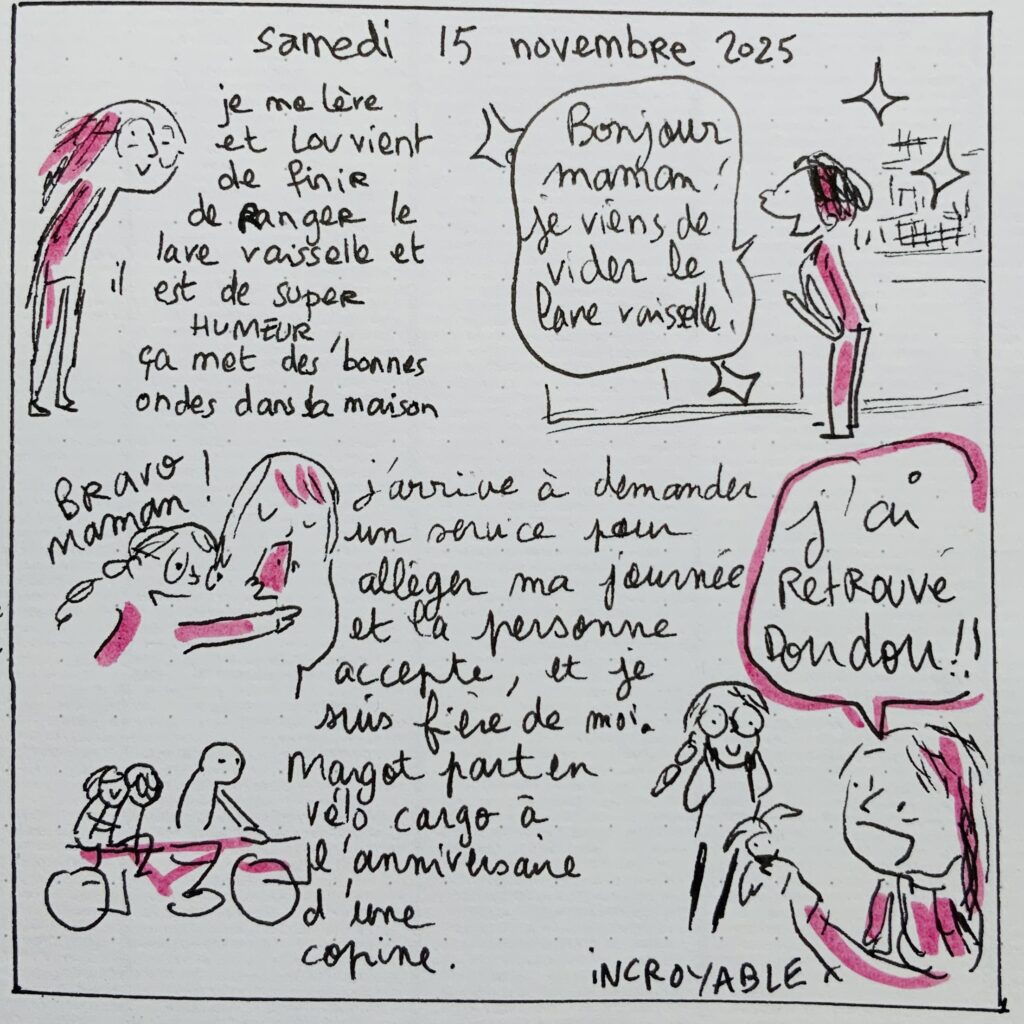 samedi 15 novembre 2025
je me lève
et Lou vient
de finir
de RangeR le
lave vaisselle et
il
est de supeR
HUMEUR,
ça met des bonnes
ondes dans la maison
Bonjour
maman!
je viens de
vider le
lave vaisselle!
BRavo
maman!
j'arrive à demander
un service pour
alléger ma journée
et la personne
accepte, et je
suis fière de moi.
Margot part en
vélo cargo à
l'anniversaire
d'une
copine.
j'ai
RetRouvé
Doudou!!
iNCROYABLE